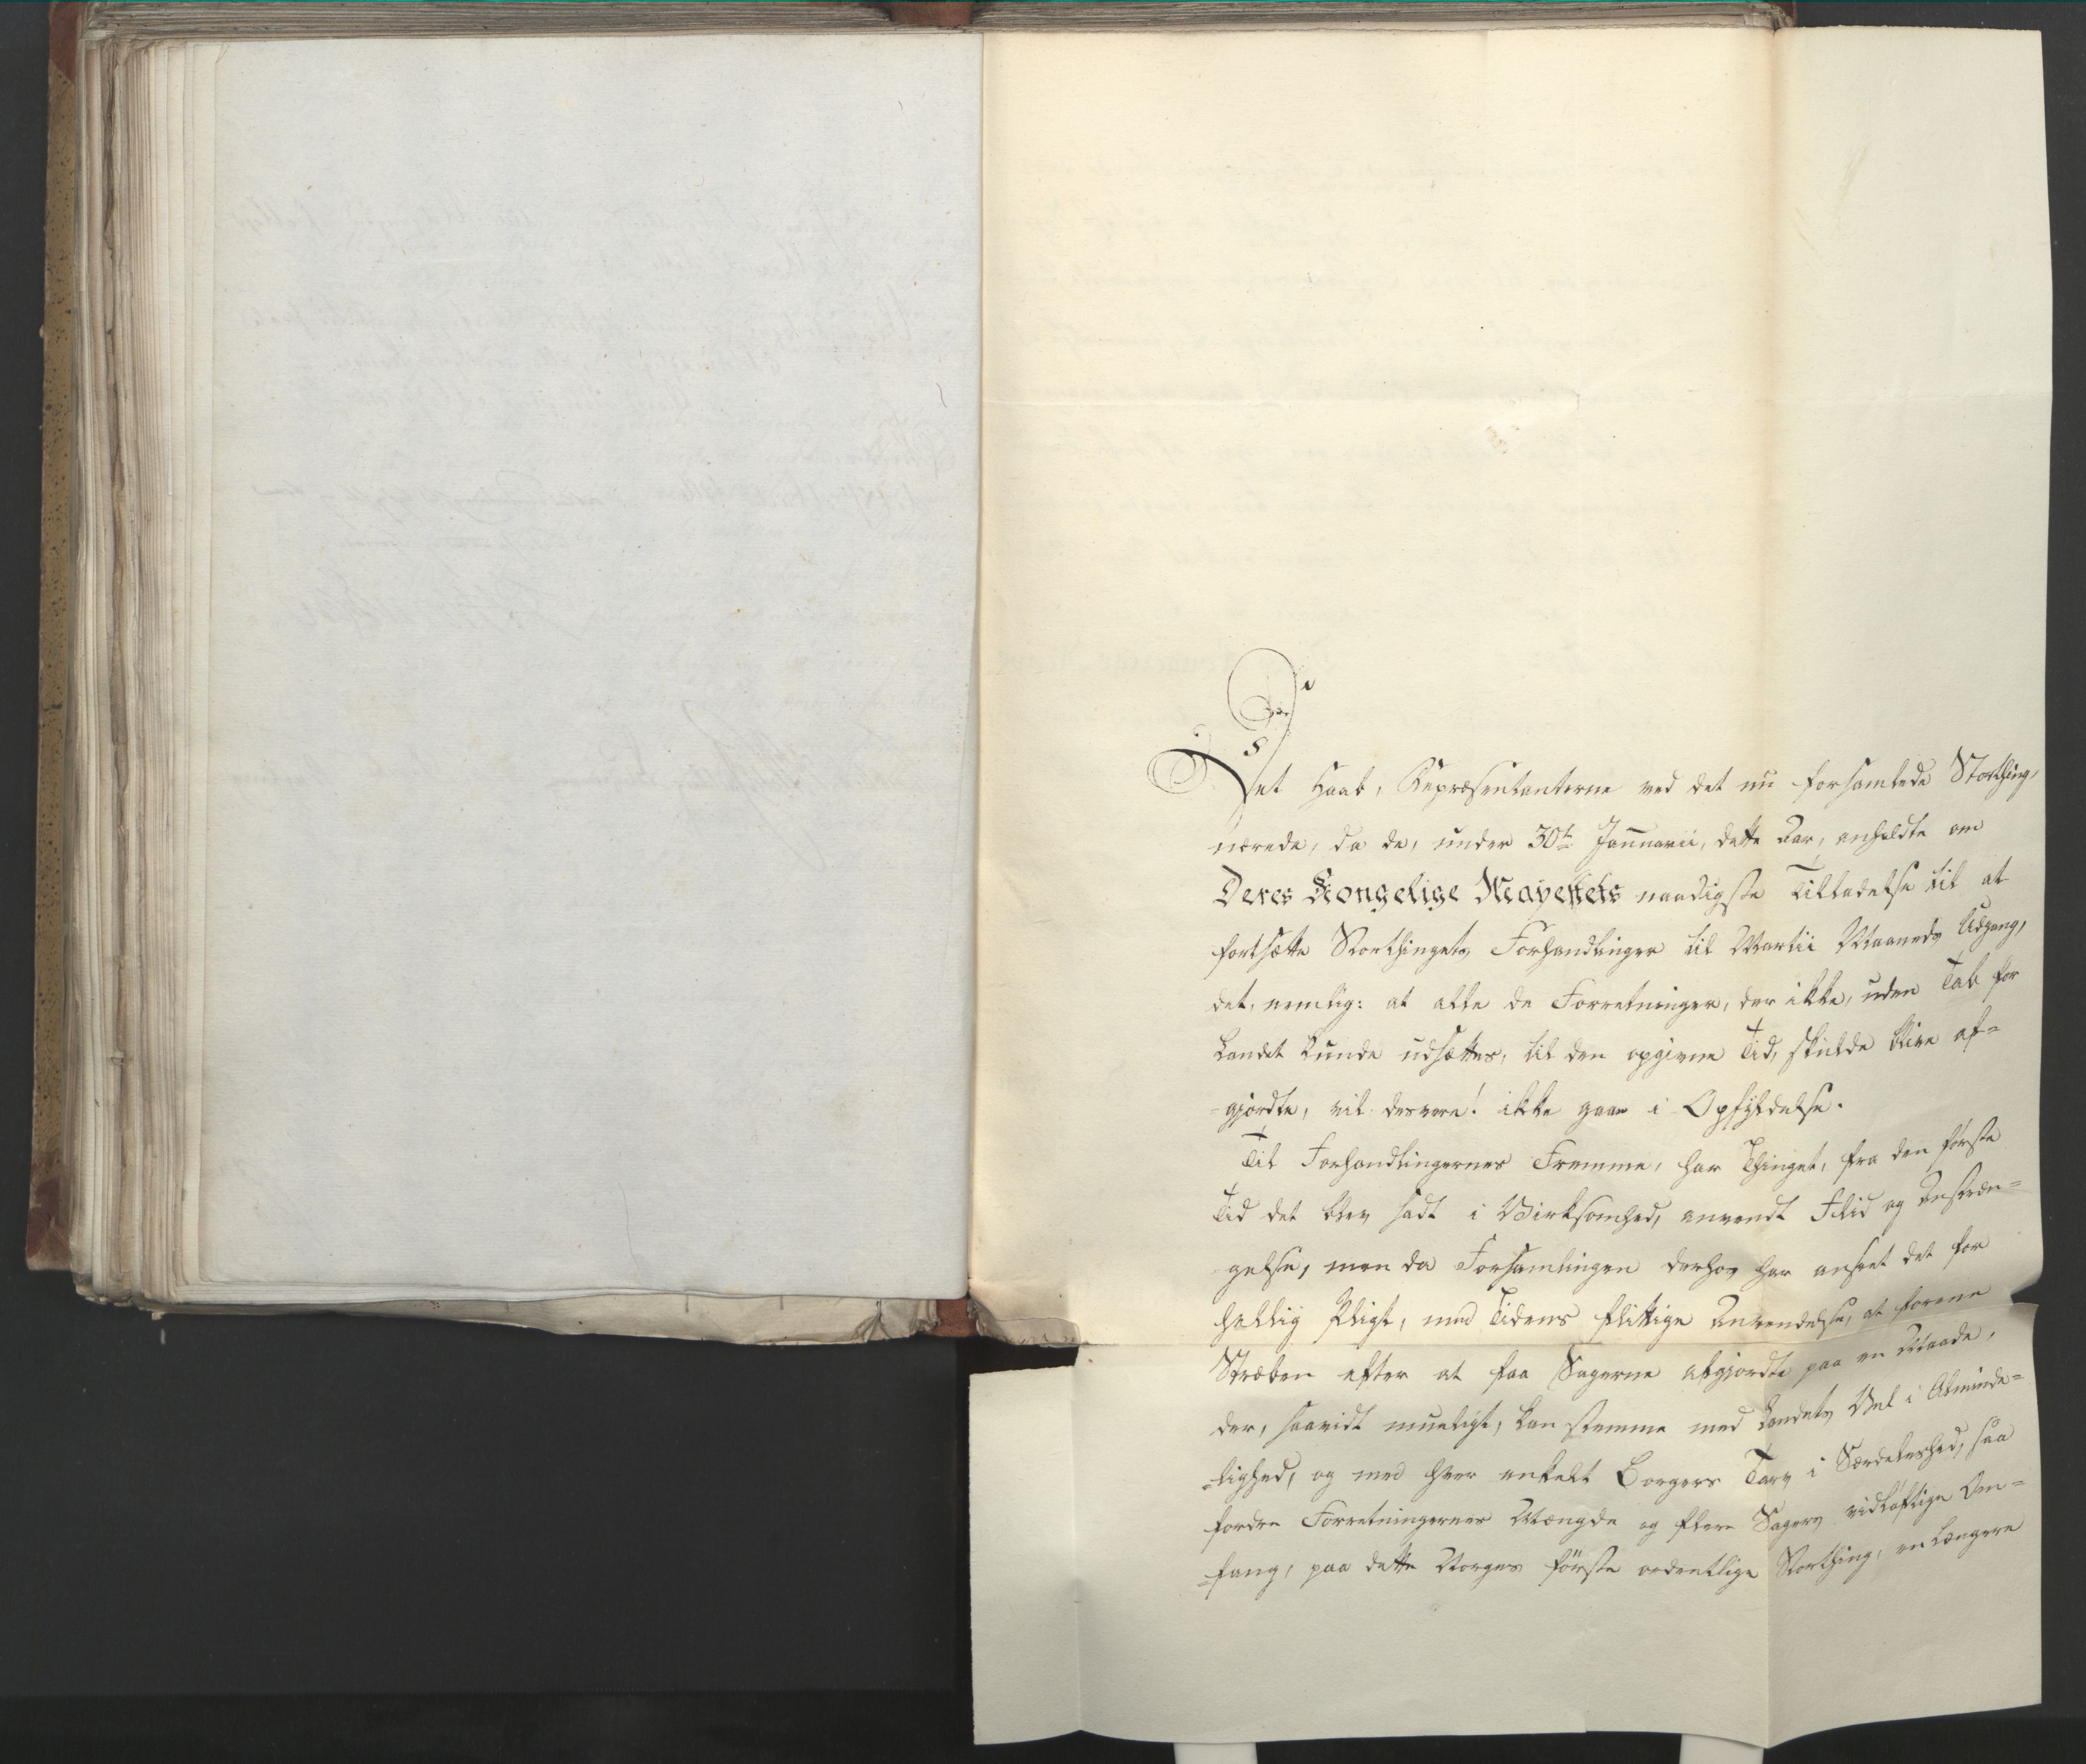 Det Haab, Repræsentanterne ved det nu forsamlede Storthing,
nærede, da de, under 30te Januarii, dette Aar, anholdte om
Deres Kongelige Majestets naadigste Tilladelse til at
fortsætte Storthingets Forhandlinger til Martii Maaneds Udgang,
det, nemlig: at alle de Forretninger, der ikke, uden Tab for
Landet kunde udsættes, til den opgivne Tid, skulde blive af-
gjordte, vil desvere! ikke gaae i Opfyldelse.
Til Forhandlingernes Fremme, har Thinget, fra den første
Tid det blev sadt i Virksomhed, anvendt Flid og Anstræn=
gelse, men da Forsamlingen derhos har anseet det for
hellig Pligt, med Tidens flittige Anvendelse, at forene
Stræben efter at faa Sagerne afgjordte paa en Maade,
der, saavidt mueligt, kan stemme med Landets Vel i Alminde=
=lighed, og med hver enkelt Borgers Tarv i Særdeleshed, saa
fordre Forretningernes Mængde og flere Sagers vidløftige Om=
=fang, paa dette Norges første ordentlige Storthing, en længere